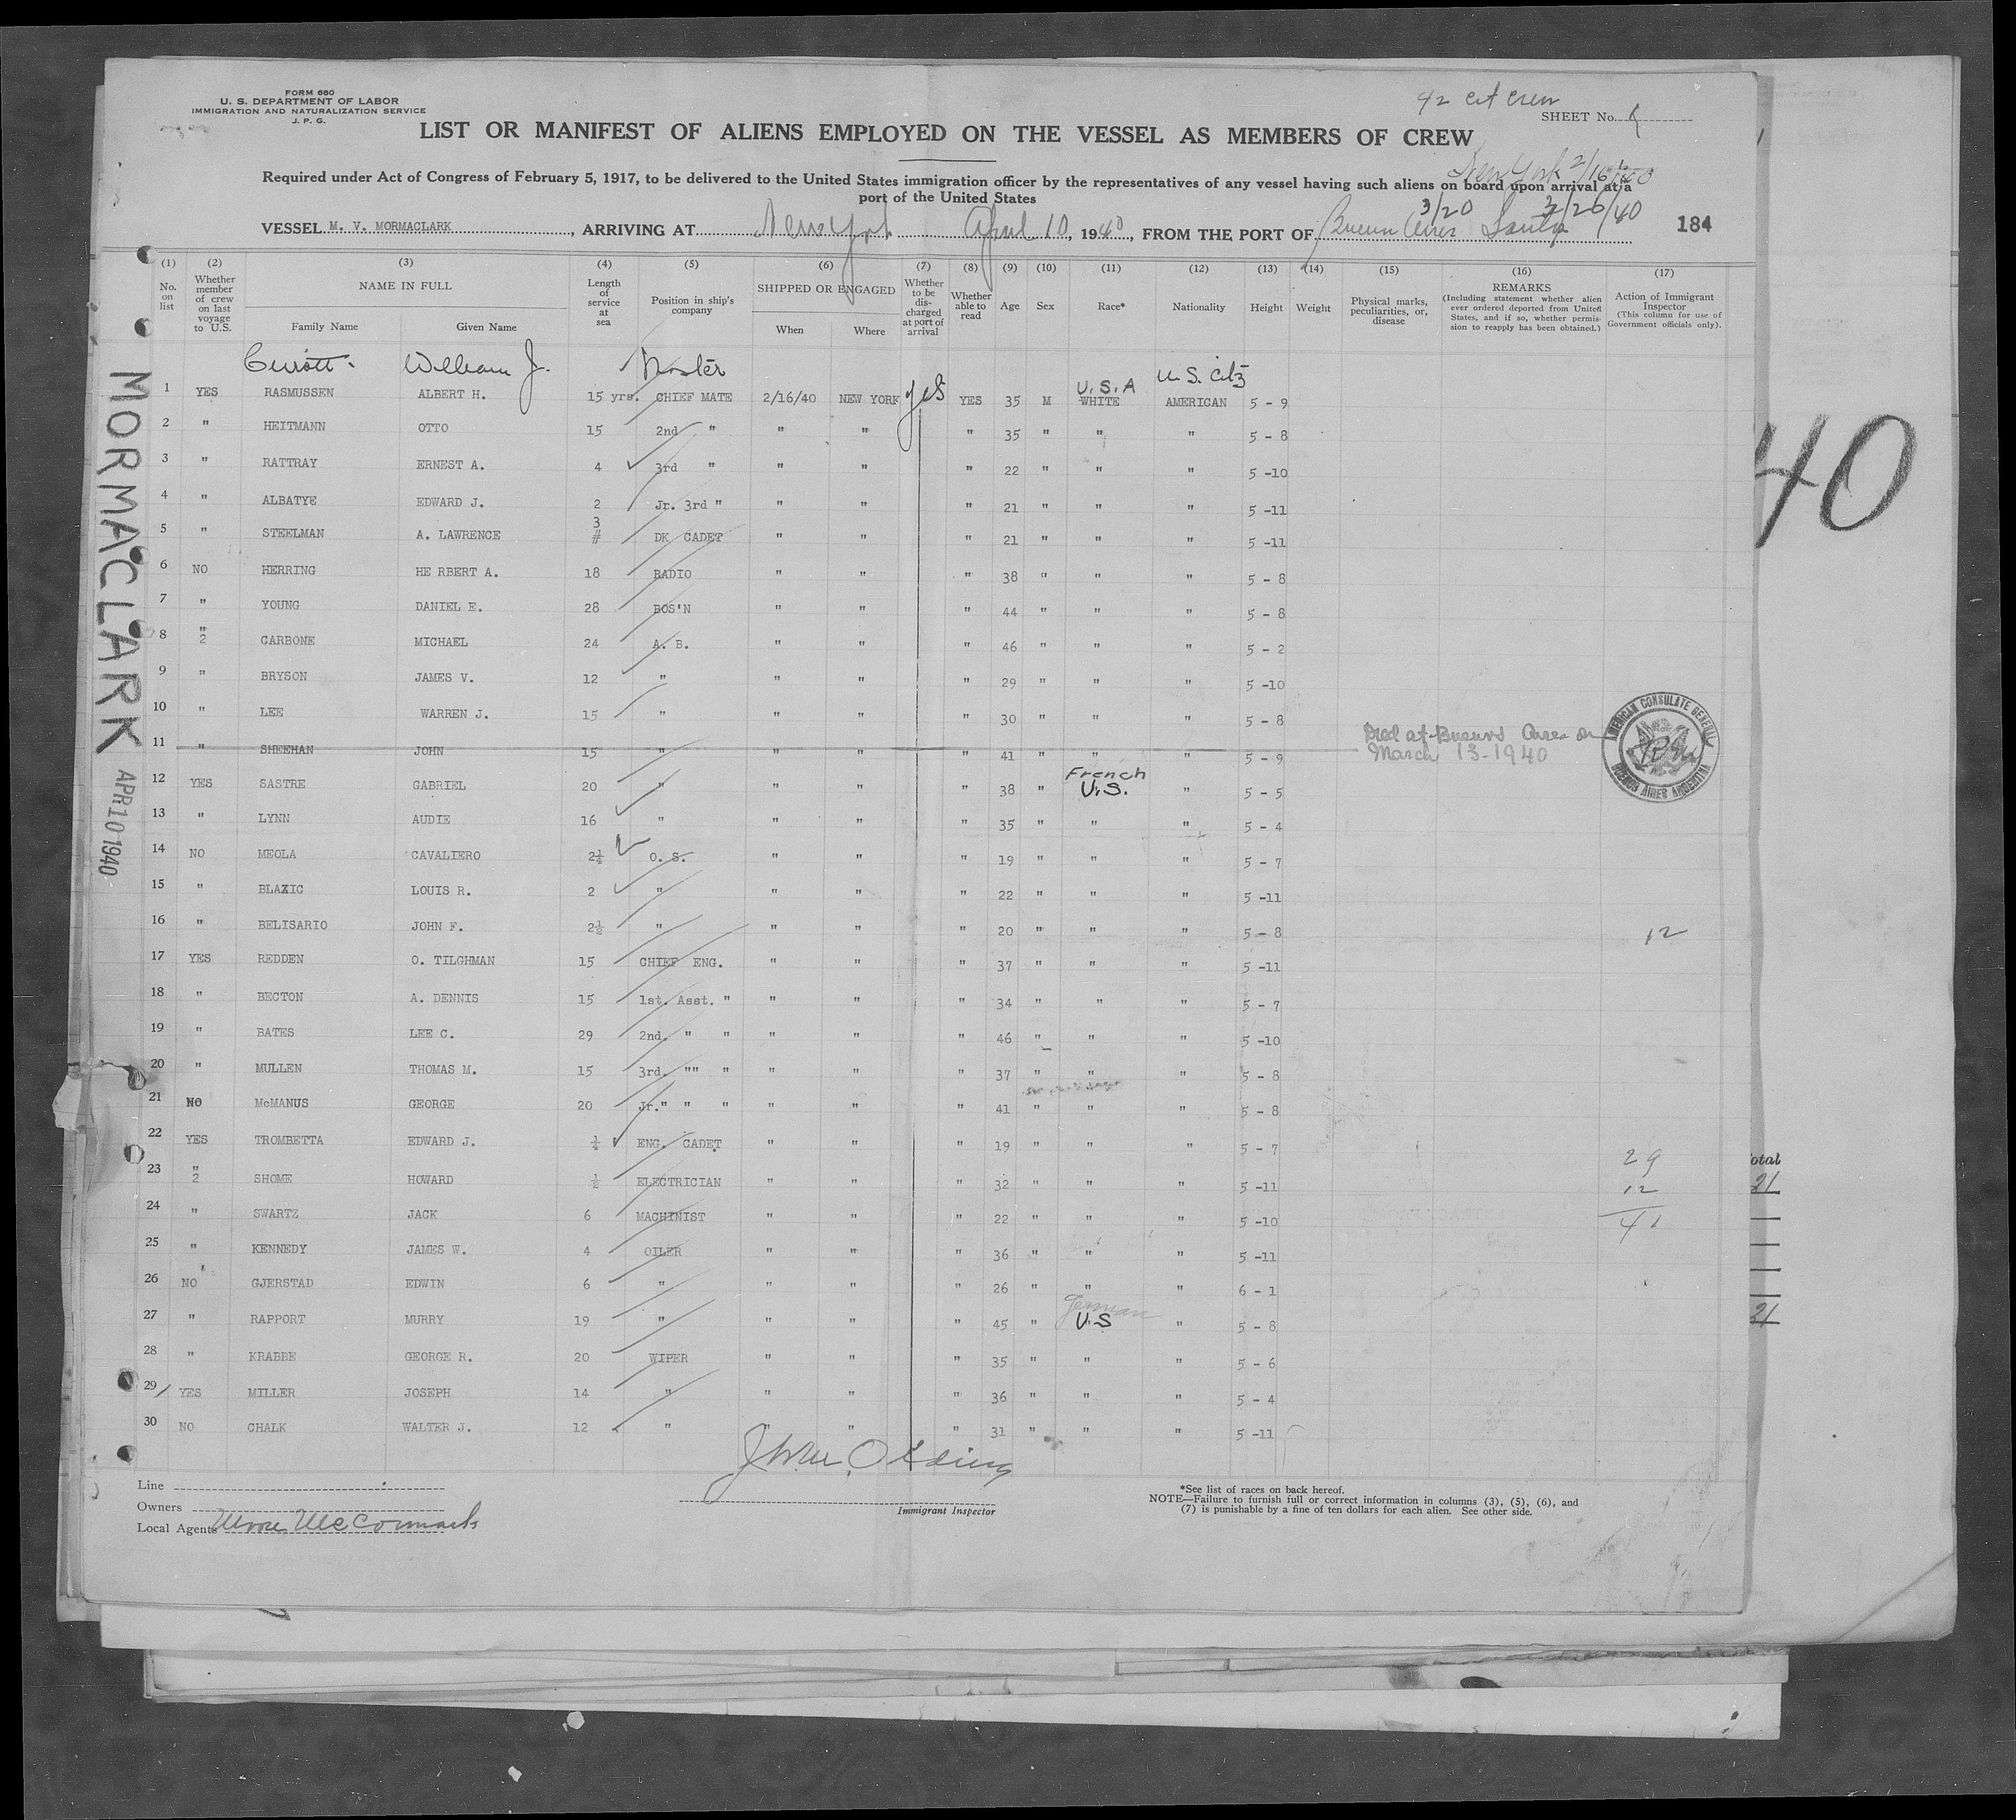 FORM 680
U. S. DEPARTMENT OF LABOR
IMMIGRATION AND NATURALIZATION SERVICE
J. P. G.
42 cit crew
SHEET No.
LIST OR MANIFEST OF ALIENS EMPLOYED ON THE VESSEL AS MEMBERS OF CREW
New York 2/16/40
Required under Act of Congress of February 5, 1917, to be delivered to the United States immigration officer by the representatives of any vessel having such aliens on board upon arrival at a
port of the United States
3/20 3/26/40
VESSEL M. V. MORMACLARK, ARRIVING AT New York April 10, 1940, FROM THE PORT OF Buenos Aires Santos 184
(1) (2) (3) (4) (5) (6) (7) (8) (9) (10) (11) (12) (13) (14) (15) (16) (17)
No. on list
Whether member of crew on last voyage to U.S.
NAME IN FULL
Family Name Given Name
Length of service at sea
Position in ship's company
SHIPPED OR ENGAGED
When Where
Whether to be discharged at port of arrival
Whether able to read
Age
Sex
Race*
Nationality
Height
Weight
Physical marks, peculiarities, or, disease
REMARKS
(Including statement whether alien ever ordered deported from United States, and if so, whether permission to reapply has been obtained.)
Action of Immigrant Inspector
(This column for use of Government officials only).
William J. Master U.S.A U.S. Citz
1 YES RASMUSSEN ALBERT H. 15 yrs. CHIEF MATE 2/16/40 NEW YORK yes YES 35 M WHITE AMERICAN 5 - 9
2 " HEITMANN OTTO 15 2nd " " " " 35 " " " 5 - 8
3 " RATTRAY ERNEST A. 4 3rd " " " " 22 " " " 5 -10
4 " ALBATYE EDWARD J. 2 Jr. 3rd " " " " 21 " " " 5 -11
5 " STEELMAN A. LAWRENCE 3 # DK CADET " " " 21 " " " 5 -11
6 NO HERRING HE RBERT A. 18 RADIO " " " 38 " " " 5 - 8
7 " YOUNG DANIEL E. 28 BOS'N " " " 44 " " " 5 - 8
8 " 2 CARBONE MICHAEL 24 A. B. " " " 46 " " " 5 - 2
9 " BRYSON JAMES V. 12 " " " " 29 " " " 5 -10
10 " LEE WARREN J. 15 " " " " 30 " " " 5 - 8
11 " SHEEHAN JOHN 15 " " " " 41 " " " 5 - 9 Died at Buenos Aires on March 13-1940
AMERICAN CONSULATE GENERAL BUENOS AIRES ARGENTINA
12 YES SASTRE GABRIEL 20 " " " " 38 " French U.S. " 5 - 5
13 " LYNN AUDIE 16 " " " " 35 " " " 5 - 4
14 NO MEOLA CAVALIERO 2¼ O. S. " " " 19 " " " 5 - 7
15 " BLAXIC LOUIS R. 2 " " " " 22 " " " 5 -11
16 " BELISARIO JOHN F. 2½ " " " " 20 " " " 5 - 8 12
17 YES REDDEN O. TILGHMAN 15 CHIEF ENG. " " " 37 " " " 5 -11
18 " BECTON A. DENNIS 15 1st. Asst. " " " " 34 " " " 5 - 7
19 " BATES LEE C. 29 2nd. " " " " " 46 " " " 5 -10
20 " MULLEN THOMAS M. 15 3rd. "" " " " " 37 " " " 5 - 8
21 NO McMANUS GEORGE 20 Jr." " " " " " 41 " " " 5 - 8
22 YES TROMBETTA EDWARD J. ¼ ENG. CADET " " " 19 " " " 5 - 7 29
23 " 2 SHOME HOWARD ½ ELECTRICIAN " " " 32 " " " 5 -11 12
24 " SWARTZ JACK 6 MACHINIST " " " 22 " " " 5 -10 41
25 " KENNEDY JAMES W. 4 OILER " " " 36 " " " 5 -11
26 NO GJERSTAD EDWIN 6 " " " " 26 " " " 6 - 1
27 " RAPPORT MURRY 19 " " " " 45 " German U.S " 5 - 8
28 " KRABBE GEORGE R. 20 WIPER " " " 35 " " " 5 - 6
29 YES MILLER JOSEPH 14 " " " " 36 " " " 5 - 4
30 NO CHALK WALTER J. 12 " " " " 31 " " " 5 -11
Line
Owners
Local Agents Moore McCormack
Immigrant Inspector
*See list of races on back hereof.
NOTE—Failure to furnish full or correct information in columns (3), (5), (6), and
(7) is punishable by a fine of ten dollars for each alien. See other side.
MORMACLARK APR 10 1940
40
otal
21
21